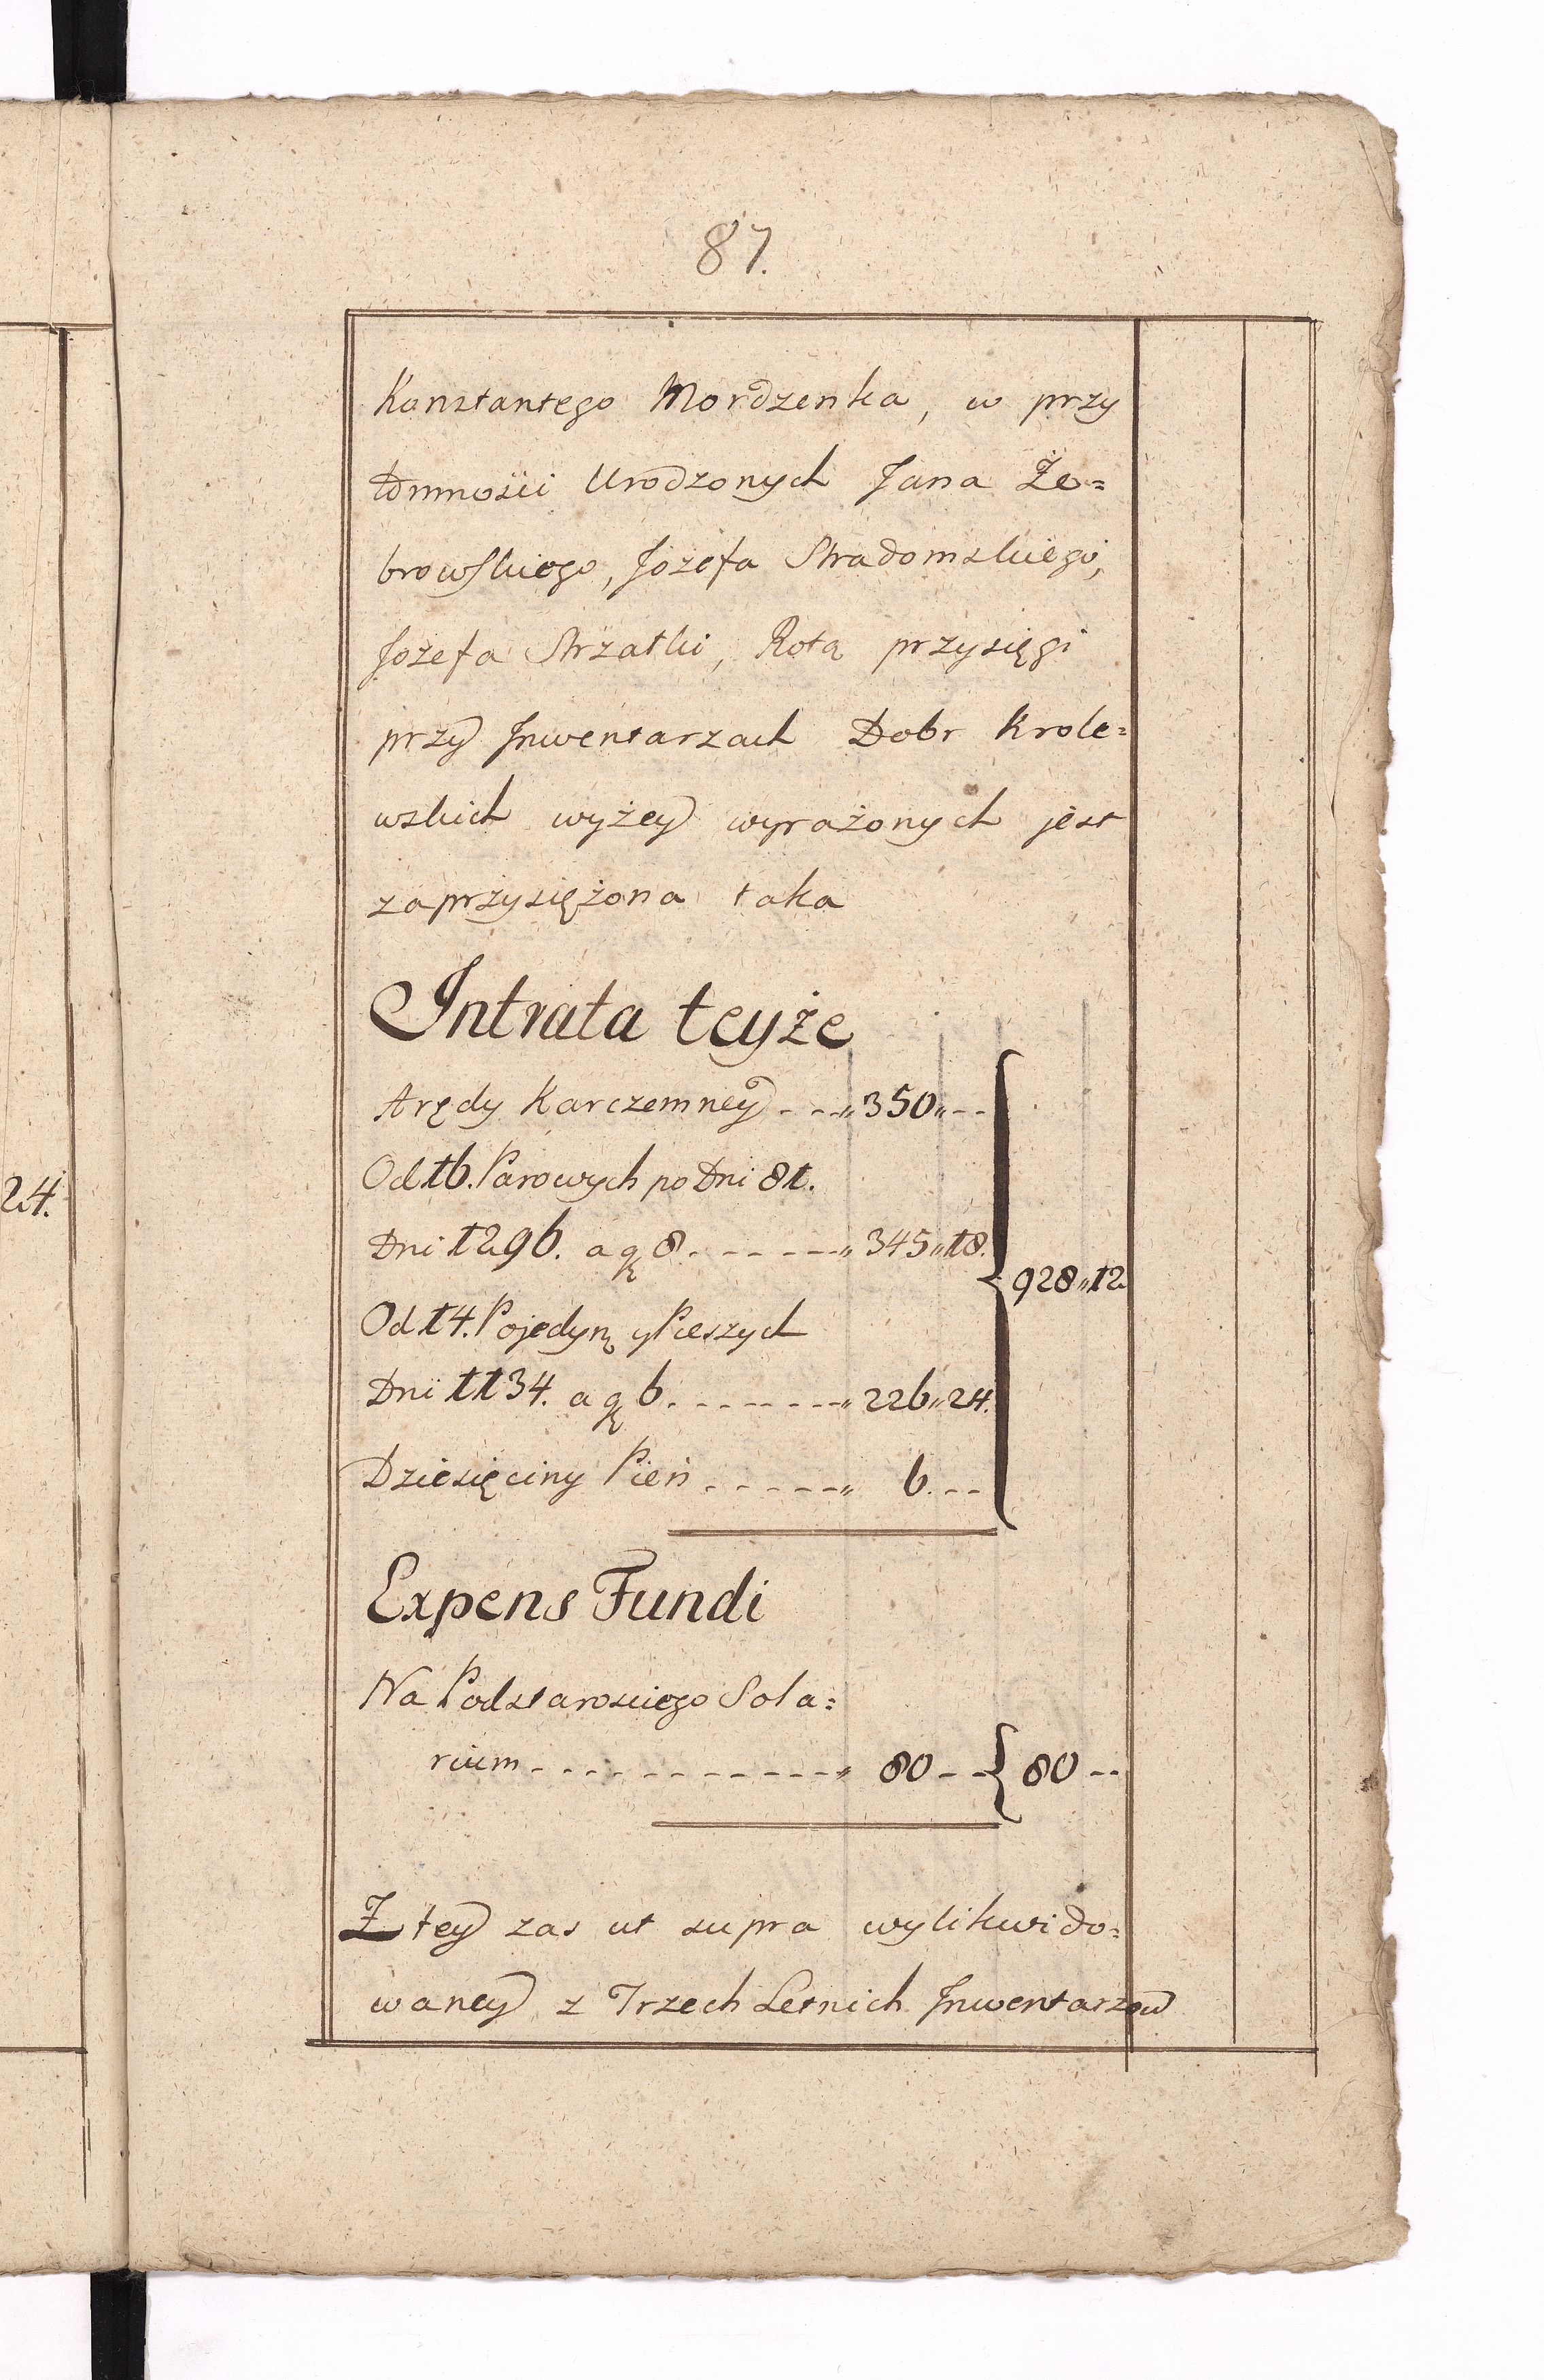 87.
Konstantego Mordzenka, w przy
tomnosci Urodzonych Jana Że=
browskiego, Jozefa Stradomskiego,
Jozefa Strzałki, Rotą przysięgi
przy Inwentarzach Dobr Krole=
wskich wyżey wyrażonych jest
zaprzysiężona taka
Intrata teyże
Arędy Karczemney - - -„ 350„ - -
Od 16. Parowych po Dni 81.
Dni 1296. a g 8. - - - - - -„ 345„ 18.
928„ 12
Od 14. Pojedyn y Pieszych
Dni 1134. a g 6. - - - - - - -„ 226„ 24.
Dziesięciny Pień - - - - - -„ 6. - -
24.
Expens Fundi
Na Podstarosciego Sola=
rium - - - - - - - - - - - -„ 80 - - 80 - -
Z tey zas ut supra wylikwido=
waney z Trzech Letnich Inwentarzow